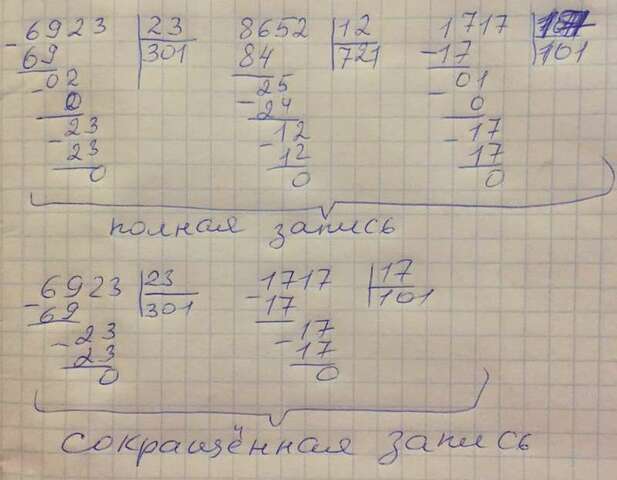 6923 23 8652 12 1717
69 301 84 721 -17 101
-02 25 -01
0 -24 0
-23 -12 -17
23 12 17
0 0 0
полная запись
-6923 23 -1717 17
69 301 17 101
-23 -17
23 17
0 0
сокращённая запись